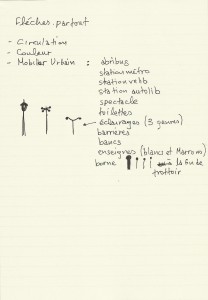 Flécher. partout
- Circulation
- Couleur
- Mobilier Urbain : abribus
station métro
station velib
station autolib
spectacle
toilettes
éclairages (3 genres)
barrières
bancs
enseignes (blancs et Marrons)
borne à la fin de
trottoir